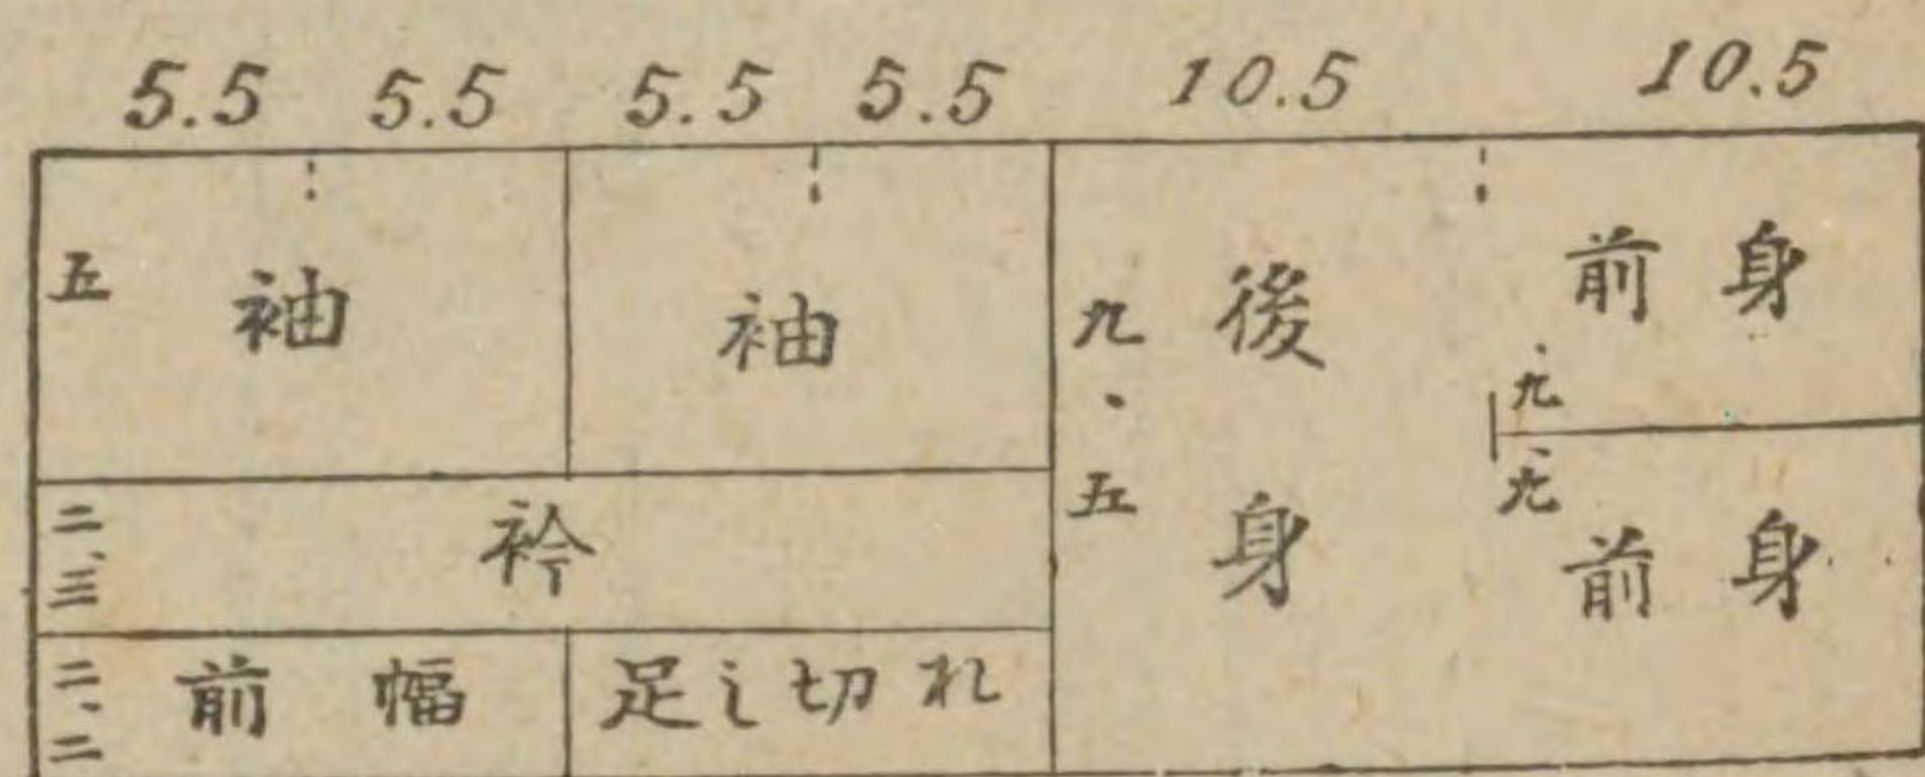 5.5 5.5 5.5 5.5 10.5 10.5
五
袖
袖
九・五
後身
前身
・九
・九
前身
衿
二、三
二、二
前幅
足し切れ